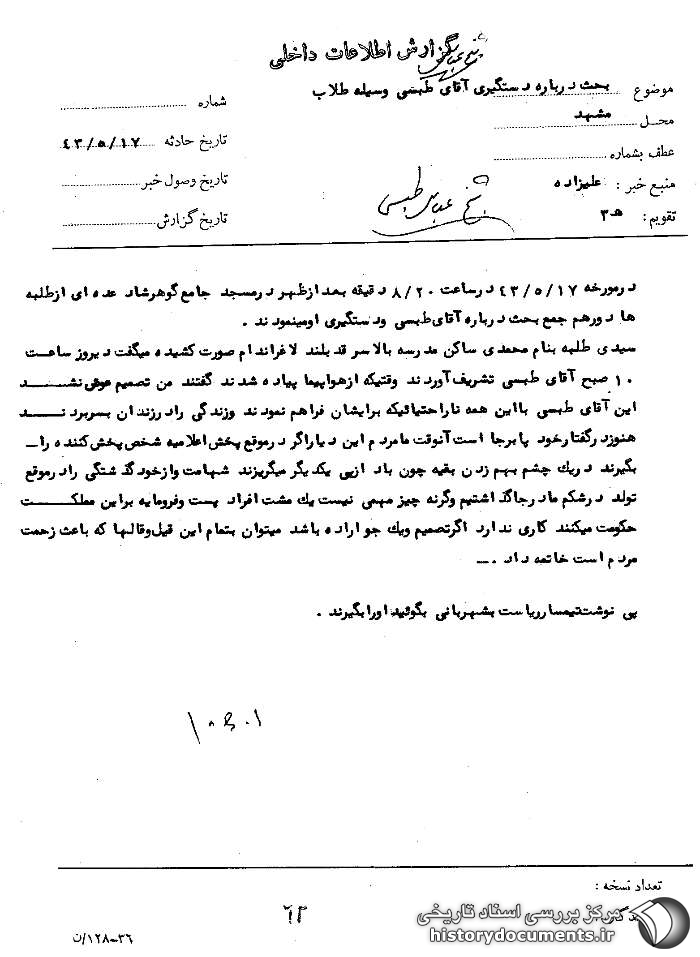 گزارش اطلاعات داخلی
موضوع بحث درباره دستگیری آقای طبسی وسیله طلاب
شماره
محل مشهد
تاریخ حادثه ۴۳/۵/۱۷
عطف بشماره
تاریخ وصول خبر
منبع خبر : علیزاده
شیخ عباس طبسی
تقویم : ه۳
تاریخ گزارش
درمورخه ۴۳/۵/۱۷ درساعت ۸/۲۰ دقیقه بعدازظهر درمسجد جامع گوهرشاد عده ای ازطلبه
ها دورهم جمع بحث درباره آقای طبسی ودستگیری اومینمودند .
سیدی طلبه بنام محمدی ساکن مدرسه بالاسر قد بلند لاغراندام صورت کشیده میگفت دیروز ساعت
۱۰ صبح آقای طبسی تشریف آوردند وقتیکه ازهواپیما پیاده شدند گفتند من تصمیم عوض نشد
این آقای طبسی بااین همه ناراحتیائیکه برایشان فراهم نمودند وزندگی رادرزندان بسربردند
هنوزدرگفتارخود پابرجا است آنوقت مامردم این دیاراگر درموقع پخش اعلامیه شخص پخش کننده را
بگیرند دریک چشم بهم زدن بقیه چون باد ازپی یکدیگر میگریزند شهامت وازخودگذشتگی رادرموقع
تولد درشکم مادرجاگذاشتیم وگرنه چیز مهمی نیست یک مشت افراد پست وفرومایه براین مملکت
حکومت میکنند کاری ندارد اگرتصمیم ویک جو اراده باشد میتوان بتمام این قیل وقالها که باعث زحمت
مردم است خاتمه داد .
پی نوشت تیمسارریاست بشهربانی بگوئید اورابگیرند .
تعداد نسخه :
۱۲۸-۳۶/ن
مرکز بررسی اسناد تاریخی
historydocuments.ir